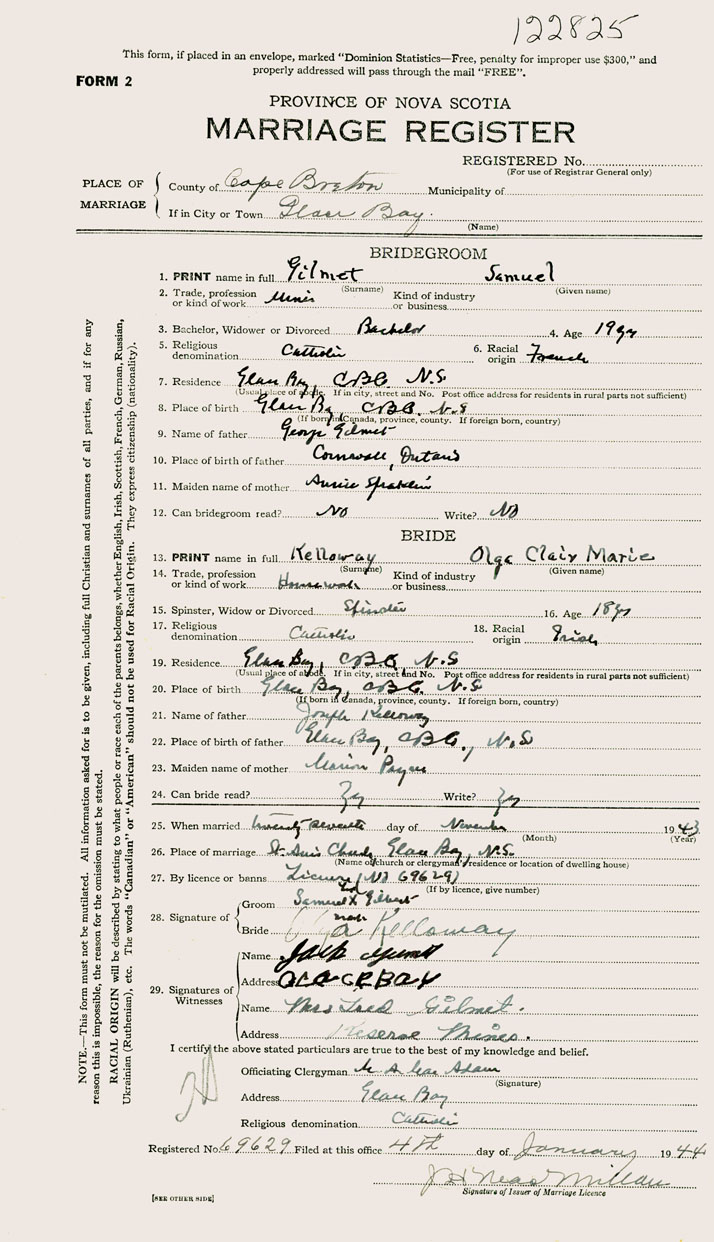 122825
This form, if placed in an envelope, marked "Dominion Statistics—Free, penalty for improper use $300," and
properly addressed will pass through the mail "FREE".
FORM 2
PROVINCE OF NOVA SCOTIA
MARRIAGE REGISTER
REGISTERED No.
(For use of Registrar General only)
PLACE OF MARRIAGE
County of Cape Breton Municipality of
If in City or Town Glace Bay.
(Name)
BRIDEGROOM
1. PRINT name in full Gilmet Samuel
(Surname) (Given name)
2. Trade, profession or kind of work Miner Kind of industry or business
3. Bachelor, Widower or Divorced Bachelor 4. Age 19 yrs
5. Religious denomination Catholic 6. Racial origin French
7. Residence Glace Bay, C.B.Co. N.S
(Usual place of abode. If in city, street and No. Post office address for residents in rural parts not sufficient)
8. Place of birth Glace Bay, C.B.Co. N.S
(If born in Canada, province, county. If foreign born, country)
9. Name of father George Gilmet
10. Place of birth of father Cornwall, Ontario
11. Maiden name of mother Annie
12. Can bridegroom read? No Write? No
BRIDE
13. PRINT name in full Kelloway Olga Clair Marie
(Surname) (Given name)
14. Trade, profession or kind of work Housework Kind of industry or business
15. Spinster, Widow or Divorced Spinster 16. Age 18 yrs
17. Religious denomination Catholic 18. Racial origin Irish
19. Residence Glace Bay, C.B.Co, N.S
(Usual place of abode. If in city, street and No. Post office address for residents in rural parts not sufficient)
20. Place of birth Glace Bay, C.B.Co. N.S
(If born in Canada, province, county. If foreign born, country)
21. Name of father Joseph Kelloway
22. Place of birth of father Glace Bay, C.B.Co., N.S
23. Maiden name of mother Marion
24. Can bride read? Write?
25. When married twenty seventh day of November 1943
(Month) (Year)
26. Place of marriage St. Anns Church, Glace Bay, N.S.
(Name of church or clergyman's residence or location of dwelling house)
27. By licence or banns License (No 69629)
(If by licence, give number)
28. Signature of
Groom Samuel X
mark
Bride Olga Kelloway
29. Signatures of Witnesses
Name Jack
Address GLACE BAY
Name Mrs Fred Gilmet.
Address Reserve Mines.
I certify the above stated particulars are true to the best of my knowledge and belief.
Officiating Clergyman M. A. Mac Adam
(Signature)
Address Glace Bay
Religious denomination Catholic
Registered No. 69629 Filed at this office 4th day of January 1944
Signature of Issuer of Marriage Licence
[SEE OTHER SIDE]
NOTE.—This form must not be mutilated. All information asked for is to be given, including full Christian and surnames of all parties, and if for any
reason this is impossible, the reason for the omission must be stated.
RACIAL ORIGIN will be described by stating to what people or race each of the parents belongs, whether English, Irish, Scottish, French, German, Russian,
Ukrainian (Ruthenian), etc. The words "Canadian" or "American" should not be used for Racial Origin. They express citizenship (nationality).